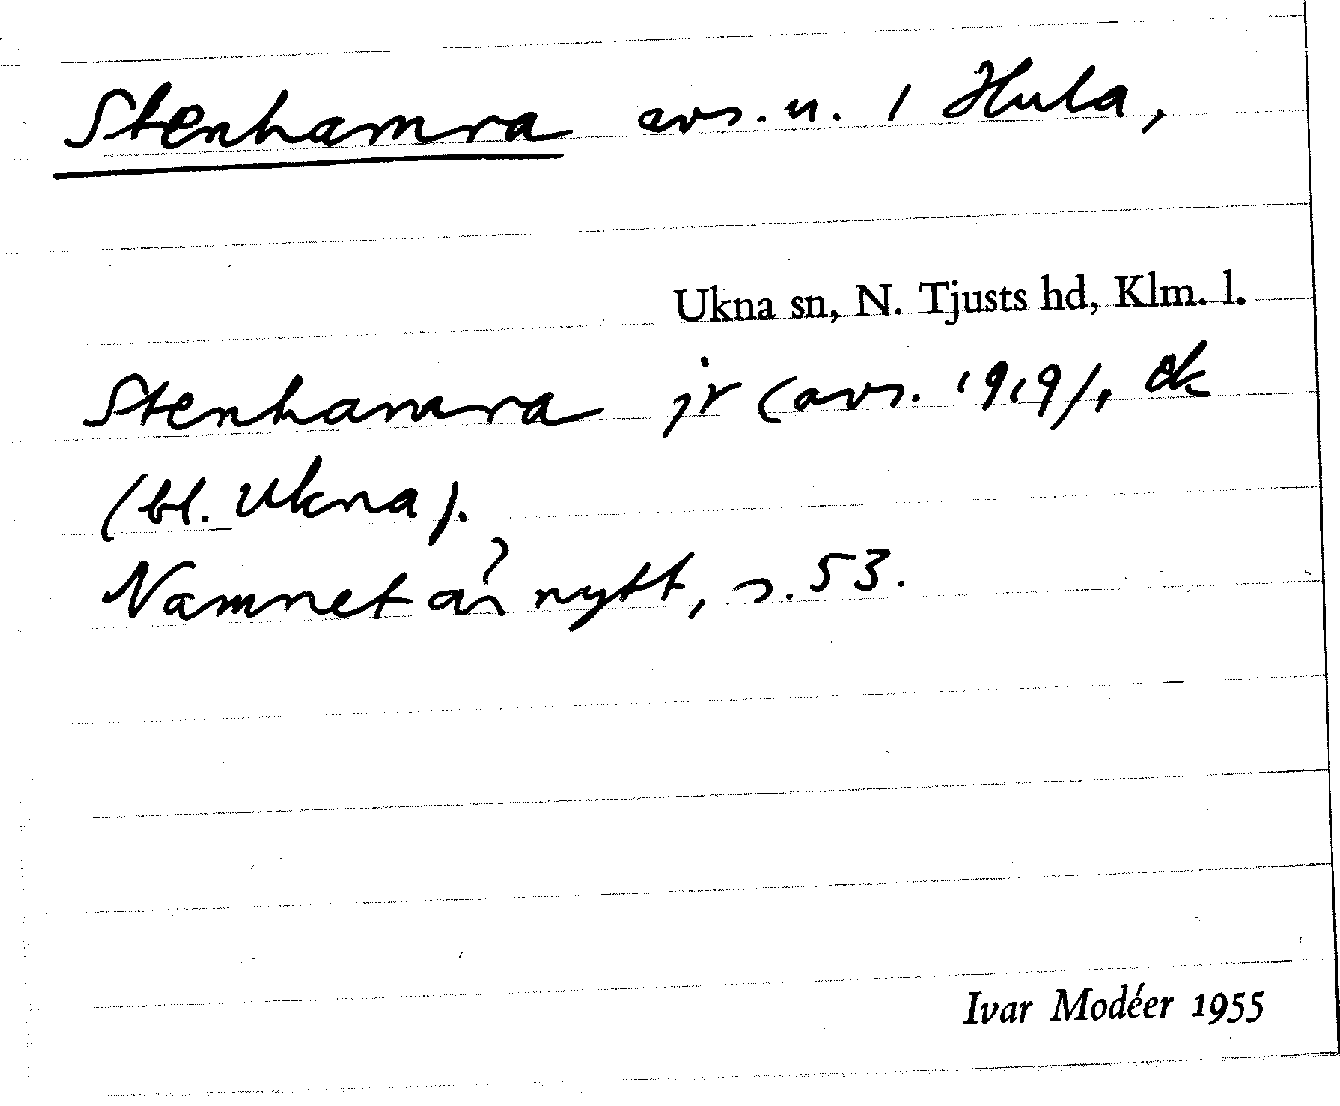 Stenhamra avs.n. 1 Hula,
Ukna sn, N. Tjusts hd, Klm. l.
Stenhamra jr (avs. 1919), ek
(bl. Ukna).
Namnet är nytt, s. 53.
Ivar Modéer 1955